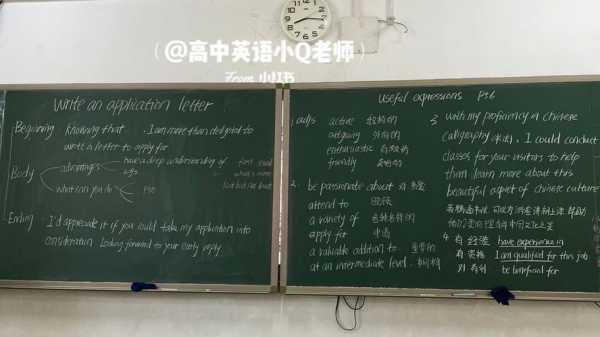 (@高中英语小Q老师)
From 小红书
Write an application letter
Beginning Knowing that . I am more than delighted to
write a letter to apply for
Body
advantages have a deep understanding of
first
what's more
what can you do P50
last but not least
Ending I'd appreciate it if you could take my application into
consideration Looking forward to your early reply.
Useful expressions P56
1. adjs active 积极的
outgoing 外向的
enthusiastic 有热情的
friendly 友好的
2. be passionate about 对
attend to
a variety of 各种各样的
apply for 申请
a valuable addition to 重要的
at an intermediate level.
3 with my proficiency in Chinese
calligraphy (书法), I could conduct
classes for your visitors to help
them learn more about this
beautiful aspect of Chinese culture
4 有经验 have experience in
有资格 I am qualified for this job
对 有利 be beneficial for